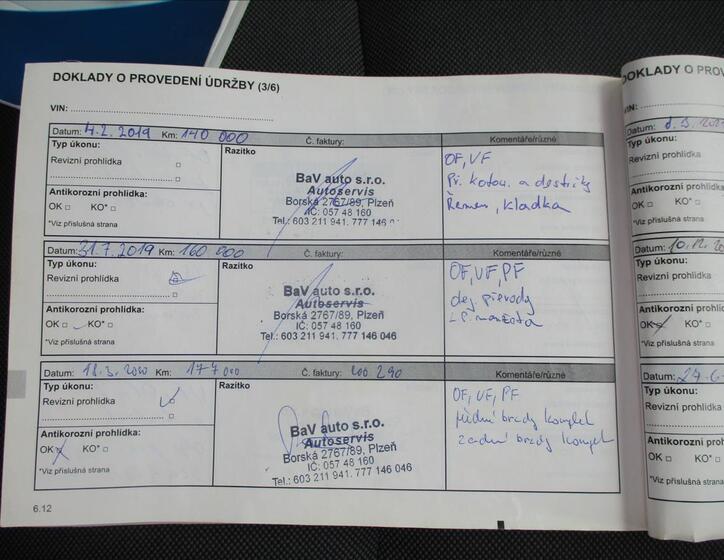 DOKLADY O PROVEDENÍ ÚDRŽBY (3/6)
VIN:
Datum: 4.2. 2019 Km: 140 000 Č. faktury: Komentáře/různé
Typ úkonu:
Revizní prohlídka
Antikorozní prohlídka:
OK KO*
*Viz příslušná strana
Razítko
BaV auto s.r.o.
Autoservis
Borská 2767/89, Plzeň
IČ: 057 48 160
Tel.: 603 211 941, 777 146
OF, VF
Př. kotou. a destičky
Řemen, kladka
Datum: 31.7. 2019 Km: 160 000 Č. faktury: Komentáře/různé
Typ úkonu:
Revizní prohlídka
Antikorozní prohlídka:
OK KO*
*Viz příslušná strana
Razítko
BaV auto s.r.o.
Autoservis
Borská 2767/89, Plzeň
IČ: 057 48 160
Tel.: 603 211 941, 777 146 046
OF, VF, PF
olej převody
manžeta
Datum: 18.3. 2020 Km: 177 000 Č. faktury: 200 290 Komentáře/různé
Typ úkonu:
Revizní prohlídka
Antikorozní prohlídka:
OK KO*
*Viz příslušná strana
Razítko
BaV auto s.r.o.
Autoservis
Borská 2767/89, Plzeň
IČ: 057 48 160
Tel.: 603 211 941, 777 146 046
OF, VF, PF
přední brzdy komplet
zadní brzdy komplet
6.12
DOKLADY O PROV
VIN:
Datum:
Typ úkonu:
Revizní prohlídka
Antikorozní prohlíd
OK KO*
*Viz příslušná strana
Datum: 10.12.
Typ úkonu:
Revizní prohlídka
Antikorozní prohlíd
OK KO*
*Viz příslušná strana
Datum: 24.6.
Typ úkonu:
Revizní prohlídka
Antikorozní prohlíd
OK KO*
*Viz příslušná strana